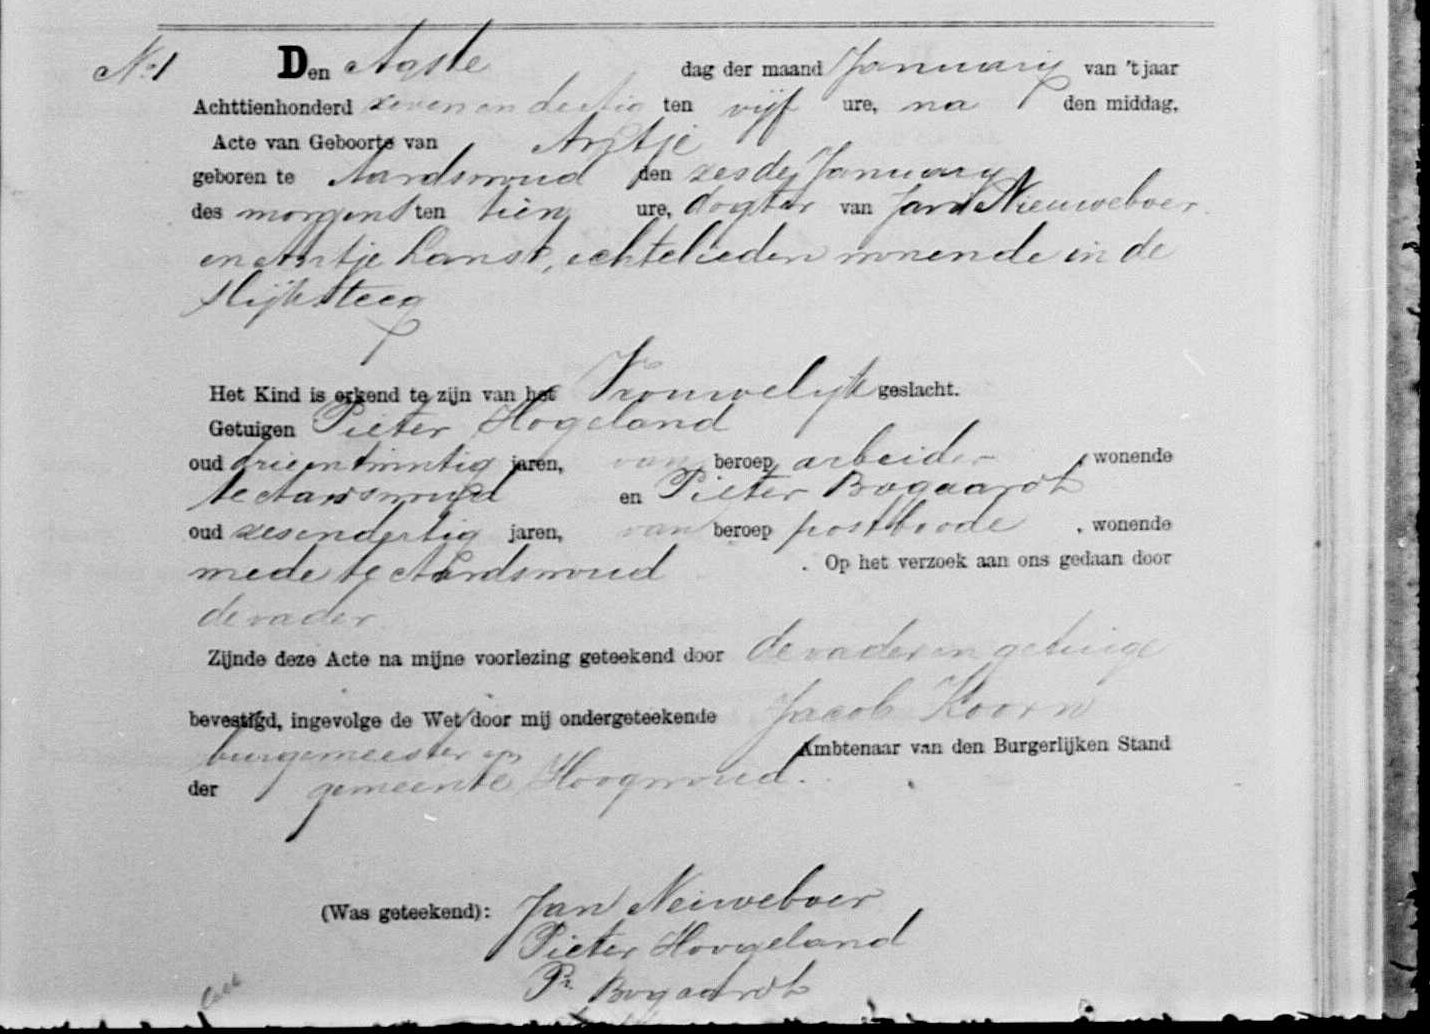 No 1 Den Agste dag der maand January van 't jaar
Achttienhonderd zeven en dertig ten vijf ure, na den middag,
Acte van Geboorte van Antje
geboren te Aardswoud den zesde January
des morgens ten tien ure, dogter van Jan Nieuweboer
en Antje Lanst, echtelieden wonende in de
Slijksteeg
Het Kind is erkend te zijn van het Vrouwelijk geslacht.
Getuigen Pieter Hogeland
oud drie en twintig jaren, van beroep arbeider, wonende
te Aardswoud en Pieter Bogaardt
oud zesendertig jaren, van beroep postboode, wonende
mede te Aardswoud. Op het verzoek aan ons gedaan door
de vader
Zijnde deze Acte na mijne voorlezing geteekend door de vader en getuige
bevestigd, ingevolge de Wet door mij ondergeteekende Jacob Koorn
burgemeester en Ambtenaar van den Burgerlijken Stand
der gemeente Hoogwoud.
(Was geteekend): Jan Neiuweboer
Pieter Hoogeland
Pr Bogaardt